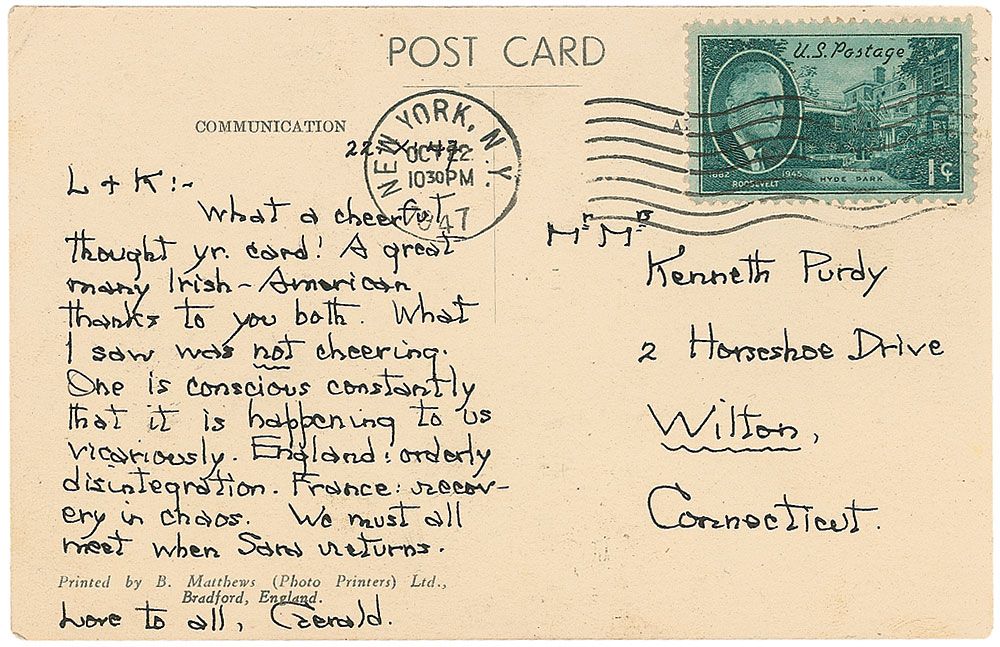 POST CARD
COMMUNICATION
22.X.47
NEW YORK, N.Y.
OCT 22
1030 PM
1947
U.S. Postage
1882 ROOSEVELT 1945
HYDE PARK
1¢
L + K:-
What a cheerful
thought yr. card! A great
many Irish-American
thanks to you both. What
I saw was not cheering.
One is conscious constantly
that it is happening to us
vicariously. England: orderly
disintegration. France: recov-
ery in chaos. We must all
meet when Sara returns.
Printed by B. Matthews (Photo Printers) Ltd.,
Bradford, England.
Love to all, Gerald.
Mr Mrs
Kenneth Purdy
2 Horseshoe Drive
Wilton,
Connecticut.